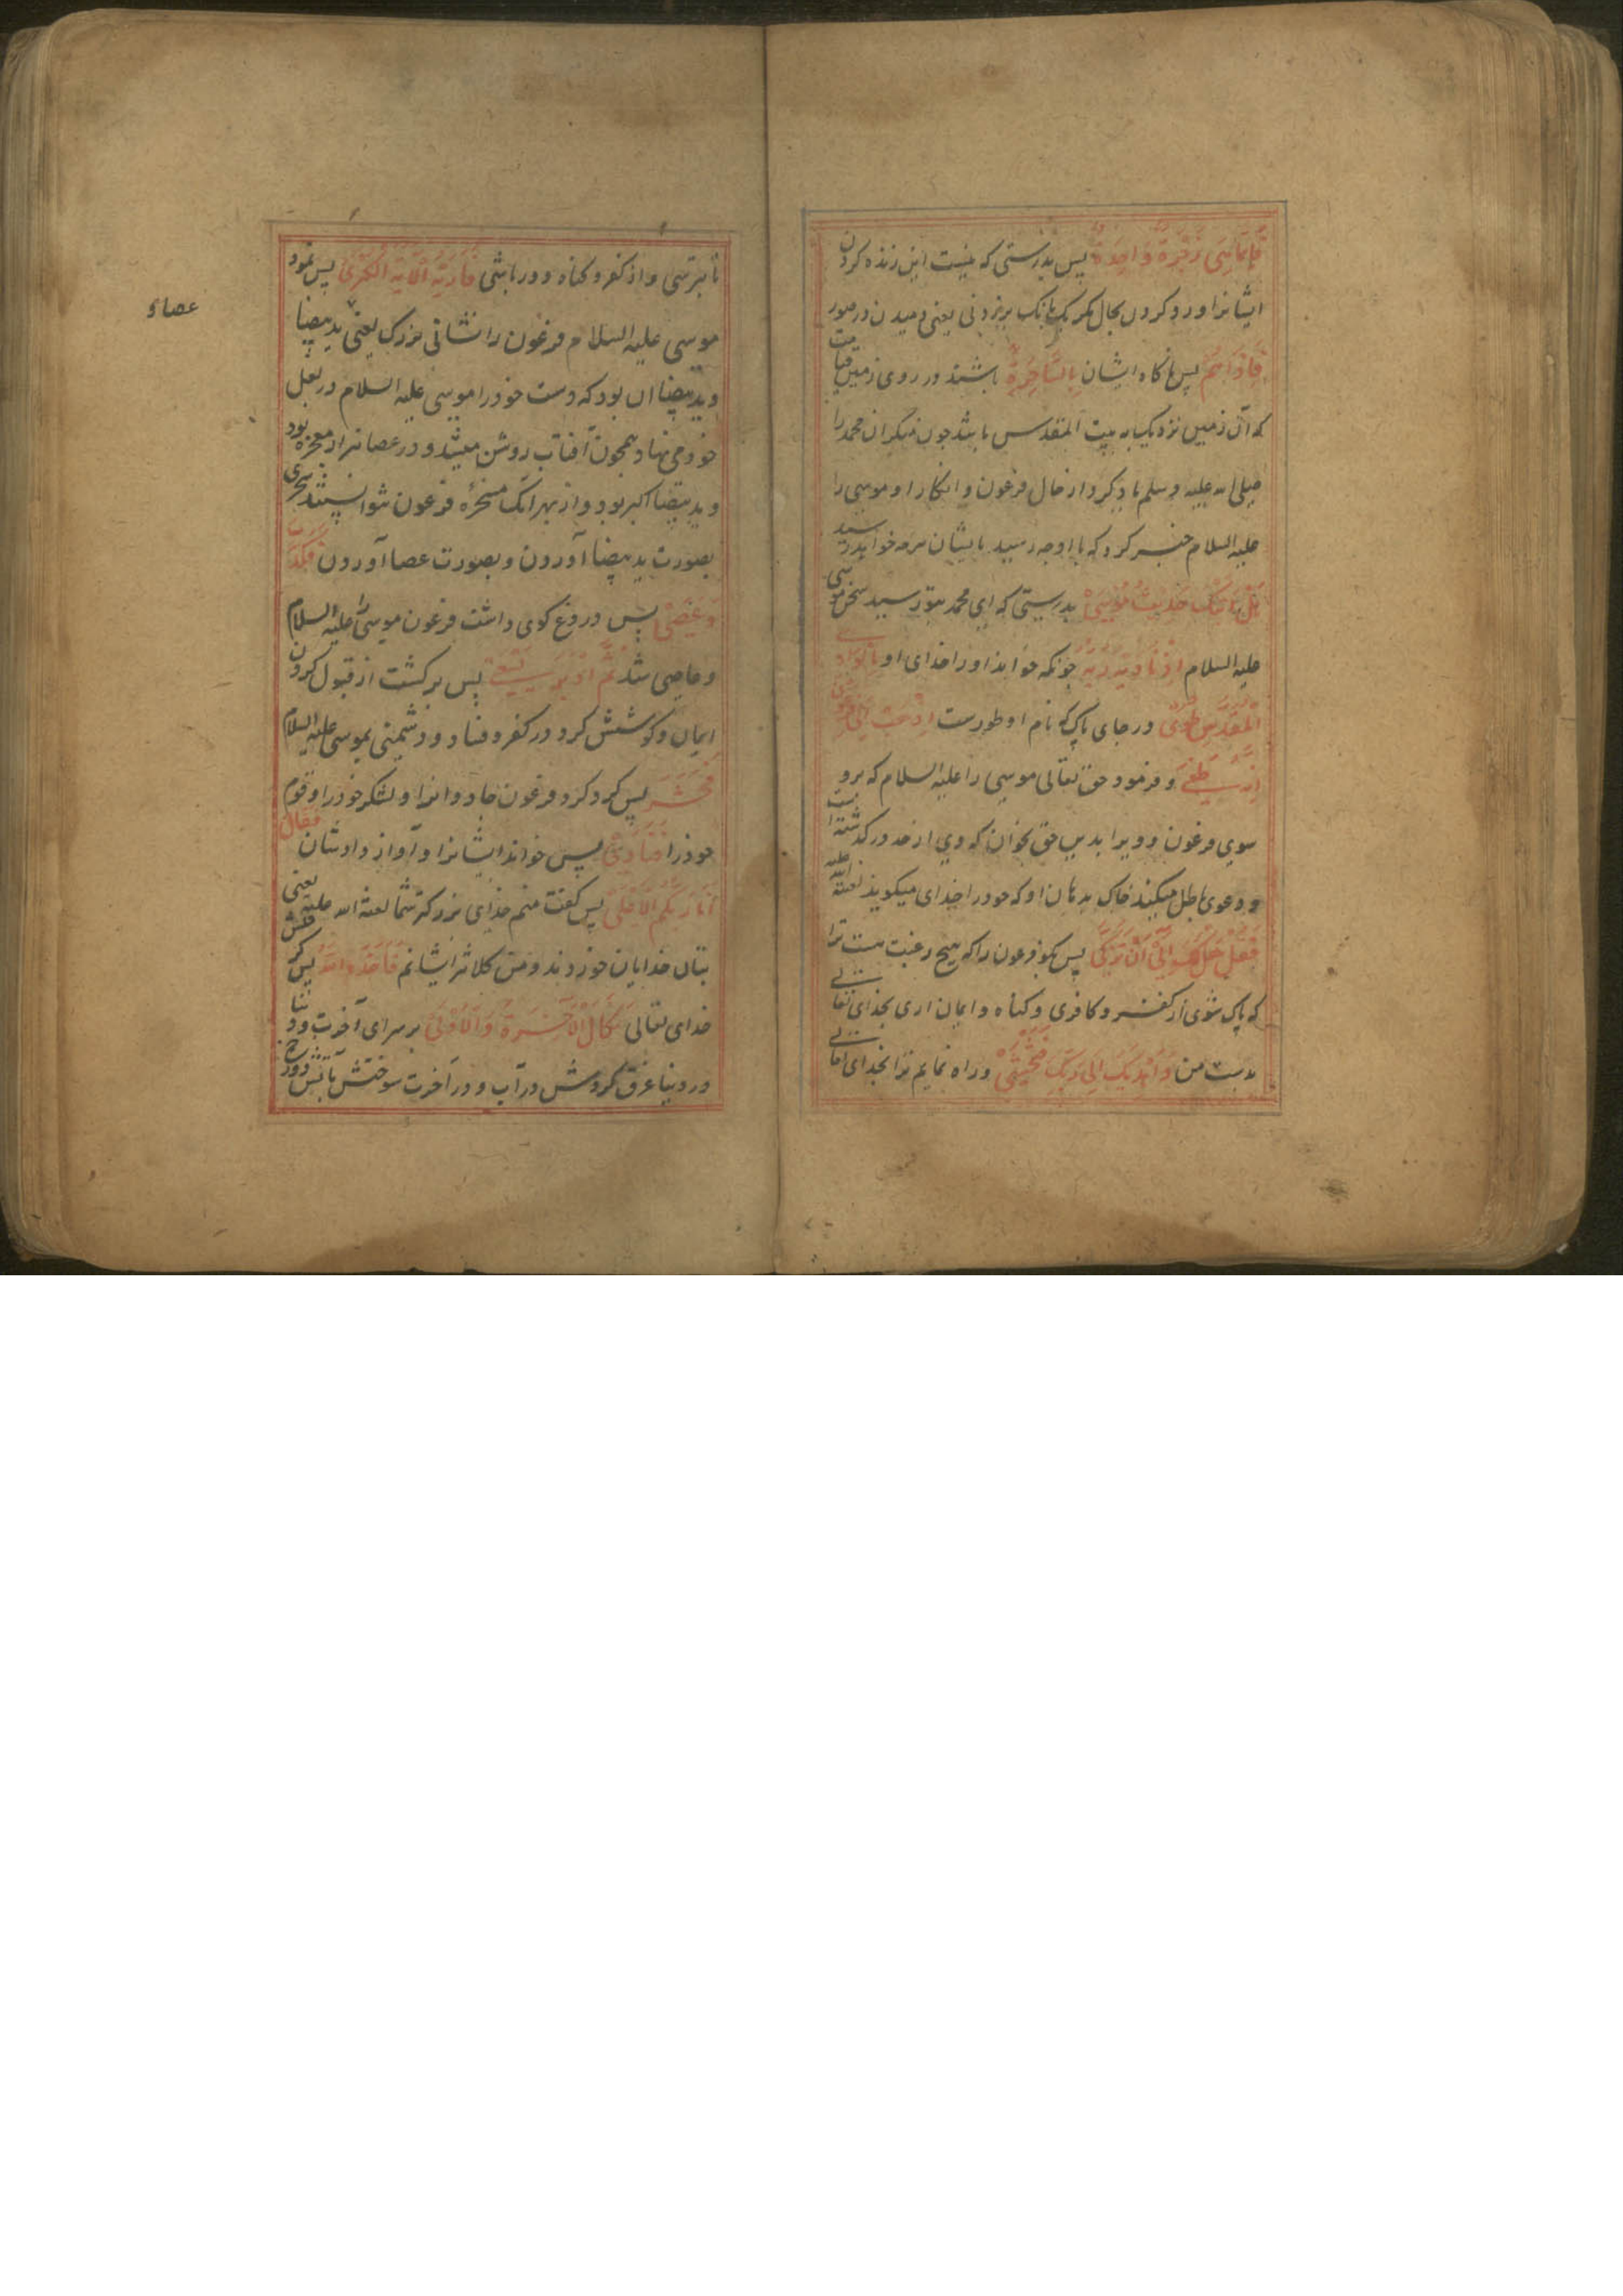 فَاِنَّمَا هِیَ زَجْرَةٌ وَاحِدَةٌ پس بدرستی که نیست این زنده کردن
ایشانرا ورد کردن بحال مکر یک بانک برزدنی یعنی دمیدن در صور
فَاِذَا هُمْ پس ناکاه ایشان بِالسَّاهِرَةِ باشند در روی زمین قیامت
که آن زمین نزدیک به بیت المقدس باشد جون منکران محمد را
صلی الله علیه وسلم یاد کرد از حال فرعون وانکار او موسی را
علیه السلام خبر کرد که باو جه رسید بایشان مرجه خواهد رسید
هَلْ اَتٰیکَ حَدِیثُ مُوسٰی بدرستی که ای محمد بتو رسید سخن موسی
علیه السلام اِذْ نَادٰیهُ رَبُّهُ جونکه خواند اورا خدای او بِالْوَادِ
الْمُقَدَّسِ طُوًی در جای پاک که نام او طورست اِذْهَبْ اِلٰی فِرْعَوْنَ
اِنَّهُ طَغٰی وفرمود حق تعالی موسی را علیه السلام که برو
سوی فرعون وویرا بدین حق بخوان که وی از حد در کذشته است
ودعوی باطل میکند خاک بدهان او که خودرا خدای میکوید لعنة الله علیه
فَقُلْ هَلْ لَکَ اِلٰی اَنْ تَزَکّٰی پس بکو فرعون را که هیج رغبت هست ترا
که پاک شوی از کفر وکافری وکناه وایمان اری بخدای تعالی
بدست من وَاَهْدِیَکَ اِلٰی رَبِّکَ فَتَخْشٰی وراه نمایم ترا بخدای تعالی
تا بترسی واز کفر وکناه دور باشی فَاَرٰیهُ الْاٰیَةَ الْکُبْرٰی پس نمود
موسی علیه السلام فرعون را نشانی بزرک یعنی ید بیضا
وید بیضا ان بود که دست خودرا موسی علیه السلام در بغل
خود می نهاد همجون آفتاب روشن میشد ودر عصا نیز از معجزه بود
وید بیضا اکبر بود واز بهر انک مسخرهٔ فرعون
بصورت ید بیضا آوردن وبصورت عصا آوردن فَکَذَّبَ
وَعَصٰی پس دروغ کوی داشت فرعون موسی را علیه السلام
وعاصی شد ثُمَّ اَدْبَرَ یَسْعٰی پس برکشت از قبول کردن
ایمان وکوشش کرد در کفر وفساد ودشمنی بموسی علیه السلام
فَحَشَرَ پس کرد کرد فرعون جادوانرا ولشکر خودرا وقوم
خودرا فَنَادٰی پس خواند ایشانرا وآواز دادشان فَقَالَ
اَنَا رَبُّکُمُ الْاَعْلٰی پس کفت منم خدای بزرکتر شما لعنة الله علیه یعنی
بتان خدایان خوردند ومن کلانتر ایشانم فَاَخَذَهُ اللّٰهُ پس کرفتش
خدای تعالی نَکَالَ الْاٰخِرَةِ وَالْاُوْلٰی بر سرای آخرت ودنیا
در دنیا غرق کردش در آب ودر آخرت سوختش بآتش دوزخ
عصاء